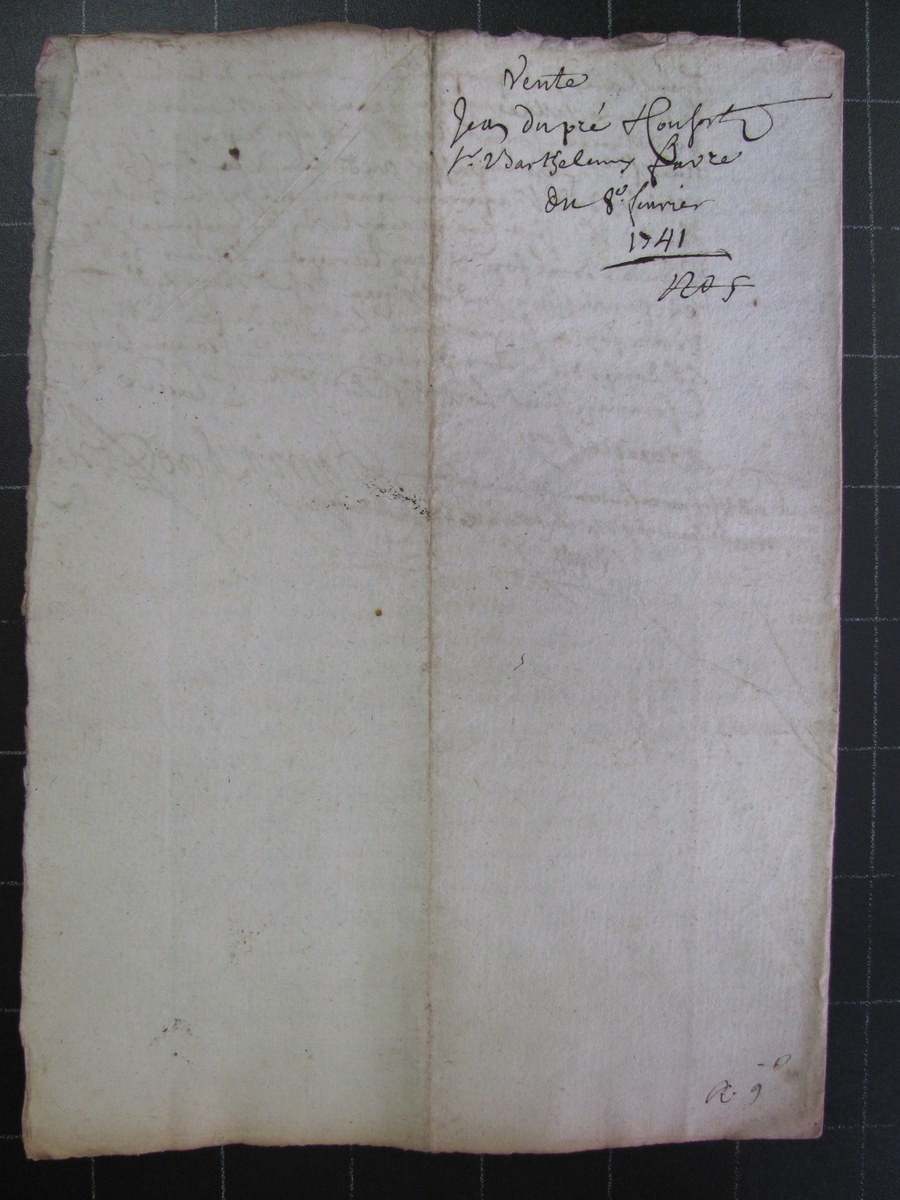 Vente
Jean dupré Honfort
Sr. Barthelemy favre
du 8e. feuvrier
1741
No 5
9